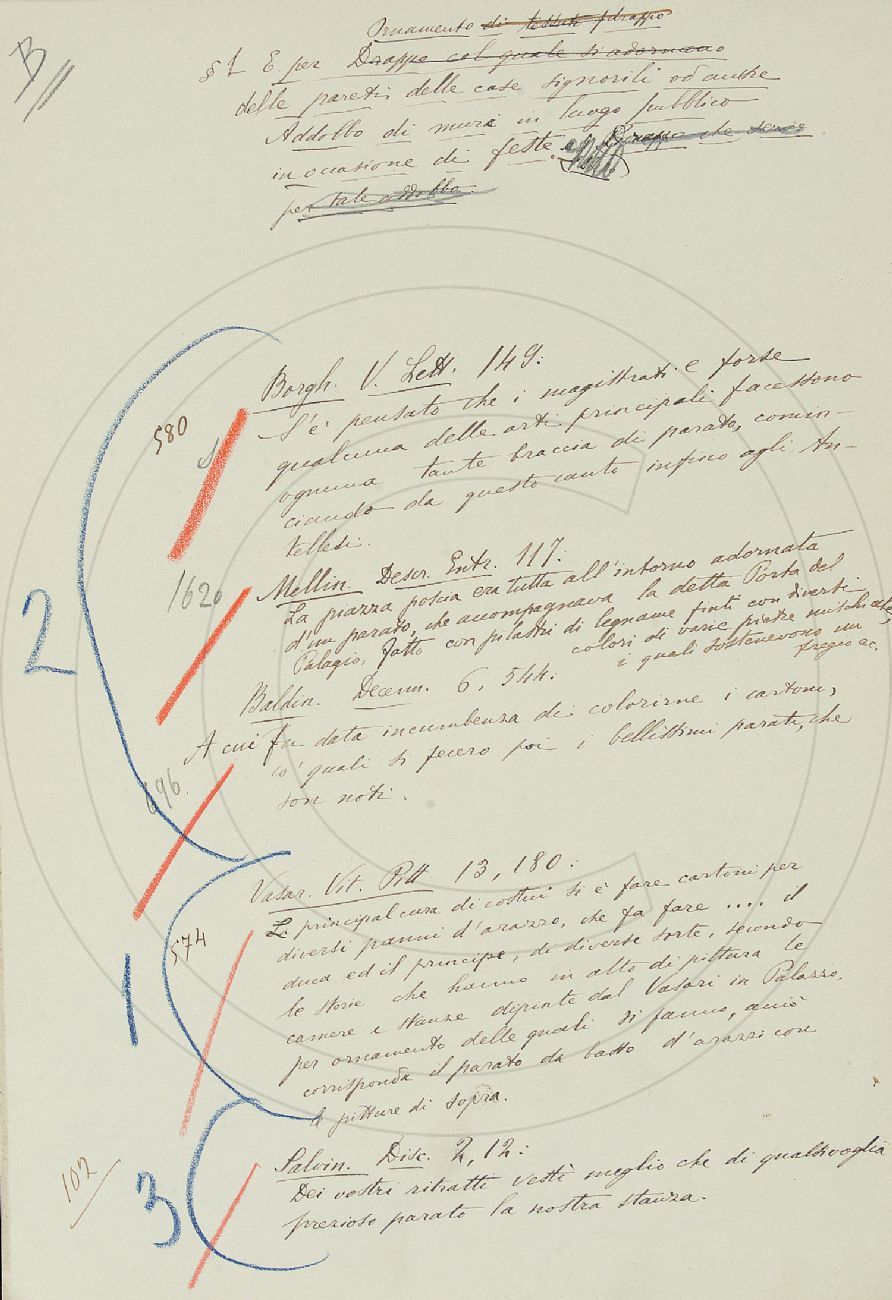 B
Ornamento di tessuti o drappo
§ 1 E per Drappo col quale si adornano
delle pareti delle case signorili od anche
Addobbo di mura in luogo pubblico
in occasione di feste. Drappo che serve
per tale addobbo.
Borgh. V. Lett. 149:
580 S'è pensato che i magistrati e forse
qualcuna delle arti principali facessono
ognuna tante braccia di parato, comin-
ciando da questo canto infino agli An-
tellesi.
1620 Mellin. Descr. Entr. 117:
La piazza poscia era tutta all'intorno adornata
d'un parato, che accompagnava la detta Porta del
Palagio, fatto con pilastri di legname finti con diversi
colori di varie pietre mischiate,
i quali sostenevono un
fregio ec.
2
Baldin. Decenn. 6, 544:
A cui fu data incumbenza di colorirne i cartoni,
co' quali si fecero poi i bellissimi parati, che
696. son noti.
Vasar. Vit. Pitt 13, 180:
La principal cura di costui si è fare cartoni per
574 diversi panni d'arazzo, che fa fare .... il
duca ed il principe, di diverse sorte, secondo
le storie che hanno in alto di pittura le
1 camere e stanze dipinte dal Vasari in Palazzo,
per ornamento delle quali si fanno, acciò
corrisponda il parato da basso d'arazzi con
le pitture di sopra.
Salvin. Disc. 2, 12:
102 Dei vostri ritratti vestì meglio che di qualsivoglia
3 prezioso parato la nostra stanza.